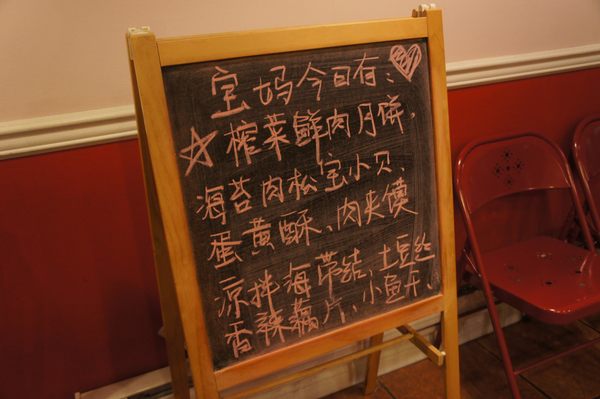 宝妈今日有：
☆榨菜鲜肉月饼，
海苔肉松宝小贝、
蛋黄酥、肉夹馍
凉拌海带结、土豆丝
香辣藕片、小鱼干、